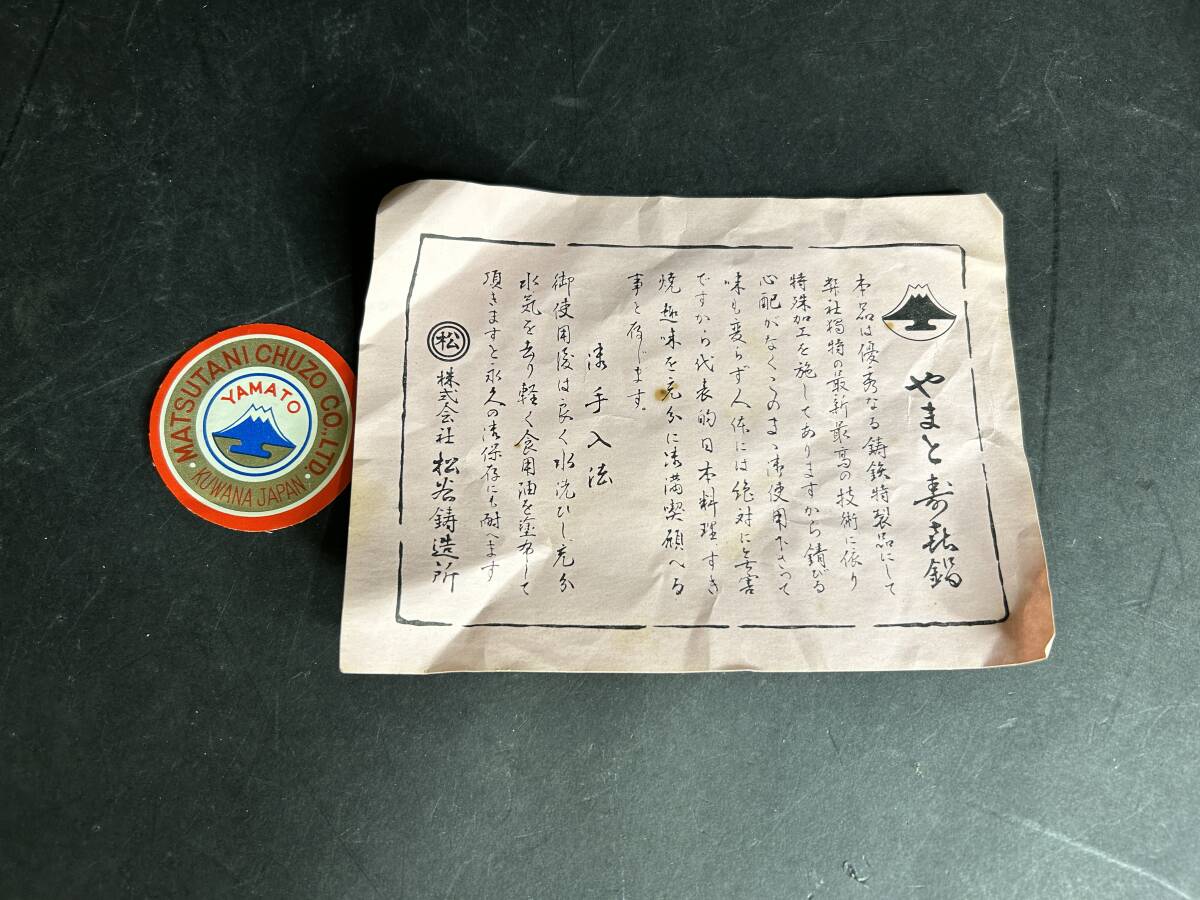 やまと寿㐂鍋
本品は優秀なる鋳鉄特製品にして
弊社独特の最新最高の技術に依り
特殊加工を施してありますから錆びる
心配がなくこのまゝ御使用下さって
味も変らず人体には絶対に無害
ですから代表的日本料理、すき
焼趣味を充分に御満喫願へる
事と存じます。
御手入法
御使用後は良く水洗ひし、充分
水気を去り軽く食用油を塗布して
頂きますと永久の御保存にも耐へます
松
株式会社 松谷鋳造所
MATSUTANI CHUZO CO., LTD.
YAMATO
KUWANA JAPAN